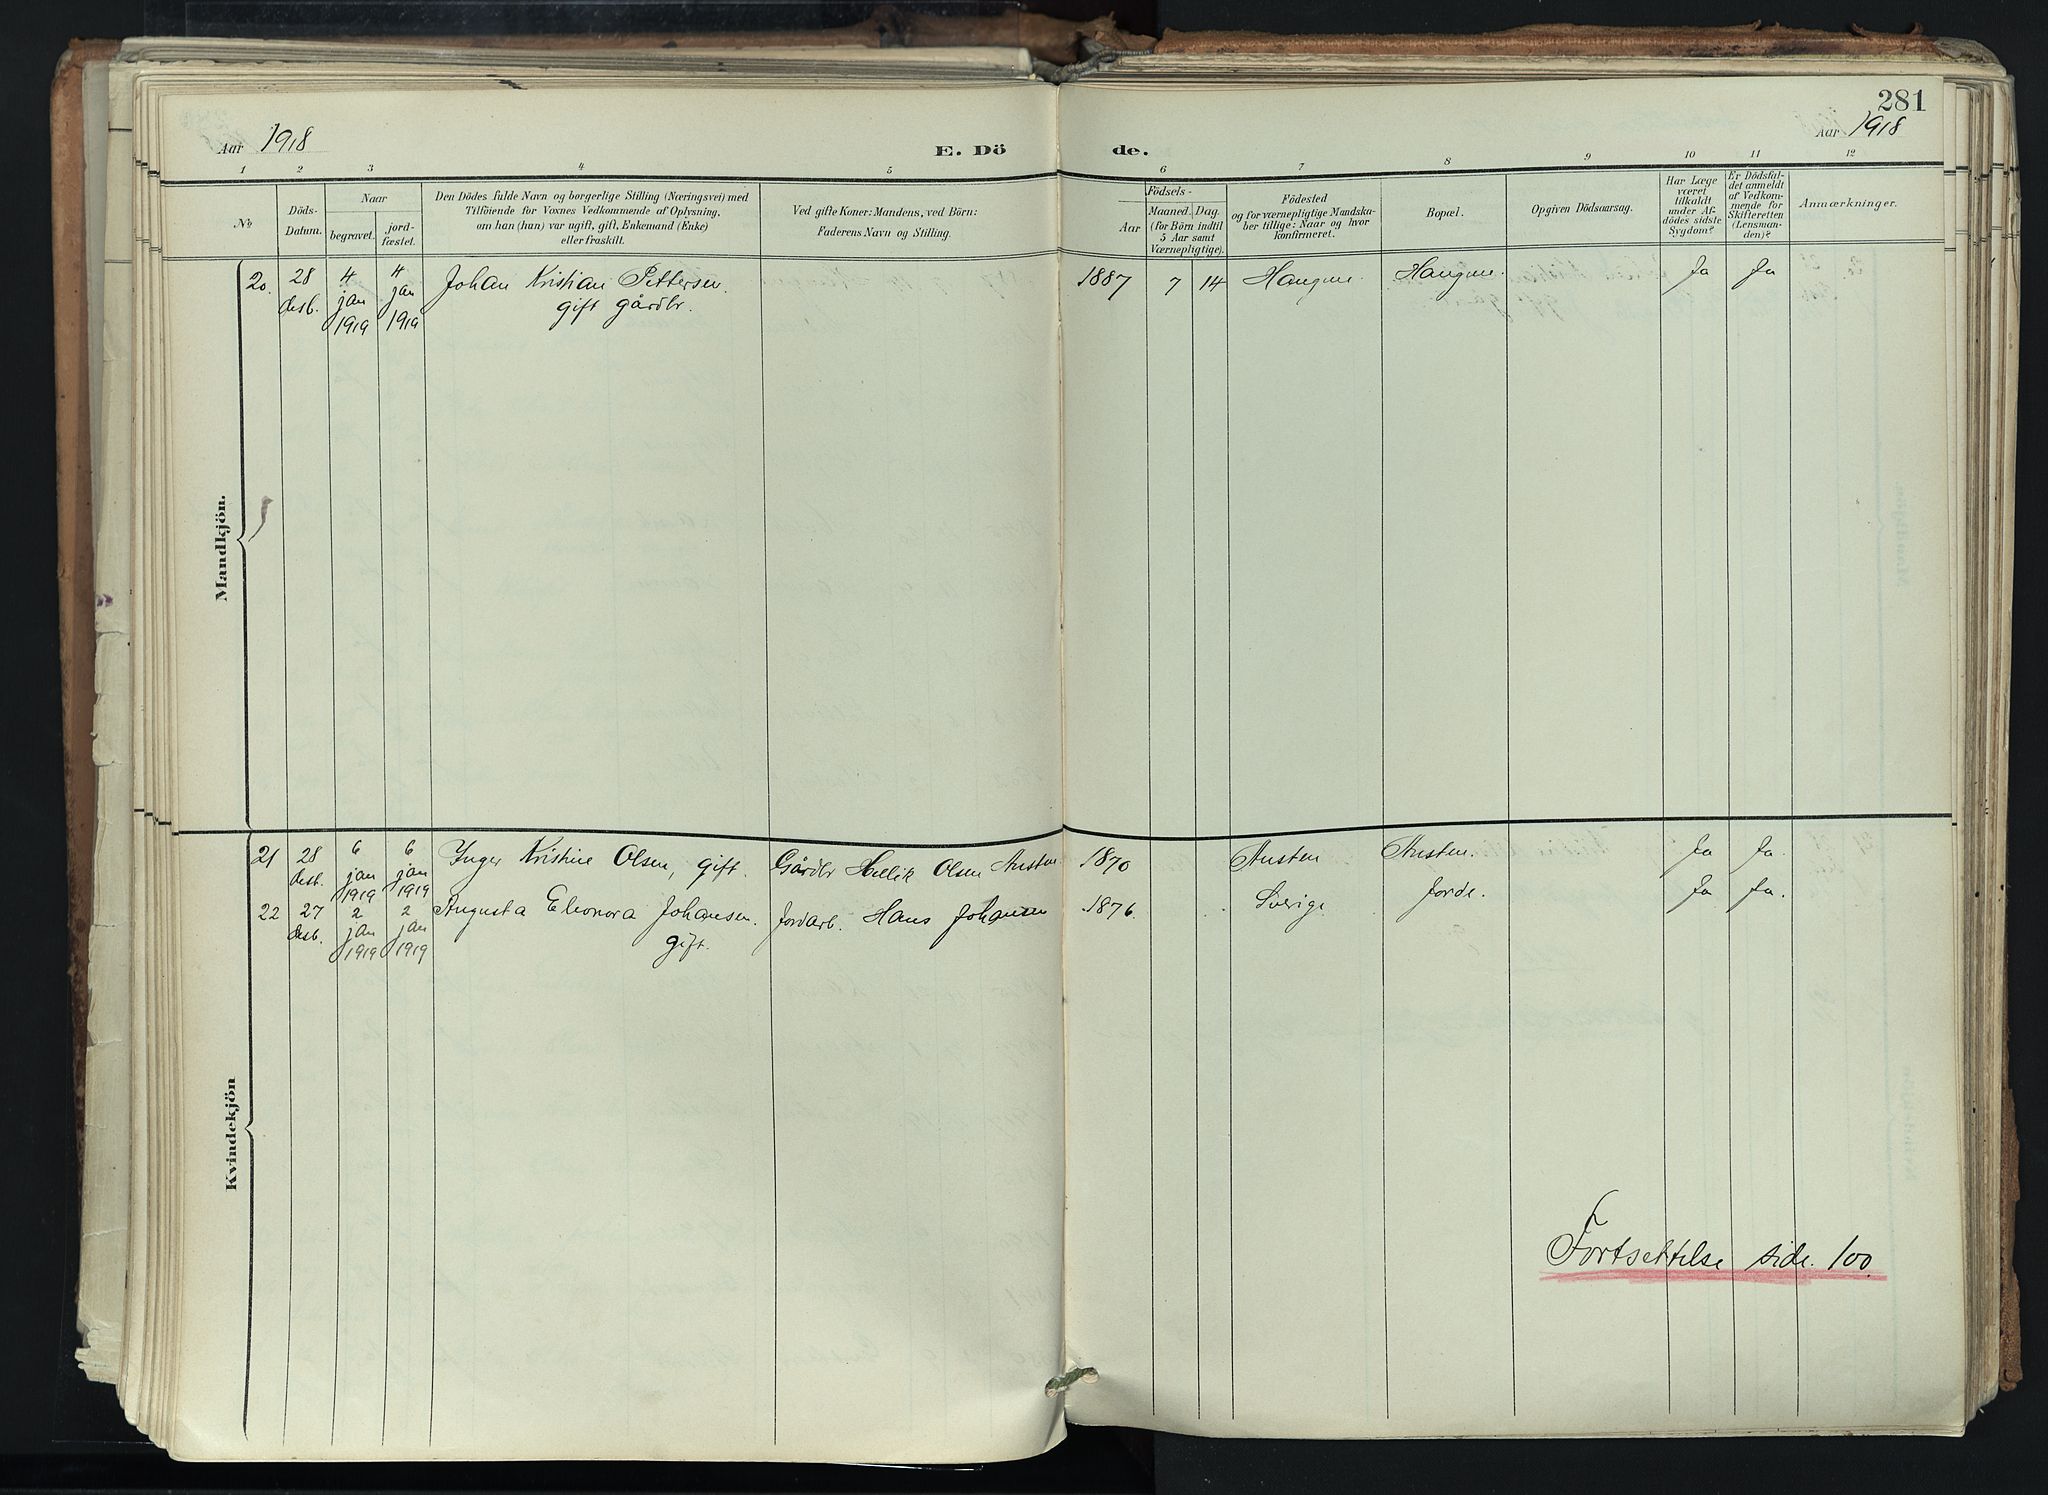 281
Aar 1918
E. Döde.
Aar 1918
1 2 3 4 5 6 7 8 9 10 11 12
No
Döds-
Datum.
Naar
begravet.
jord-
fæstet.
Den Dödes fulde Navn og borgerlige Stilling (Næringsvei) med
Tilföiende for Voxnes Vedkommende af Oplysning,
om han (hun) var ugift, gift, Enkemand (Enke)
eller fraskilt.
Ved gifte Koner: Mandens, ved Börn:
Faderens Navn og Stilling.
Födsels-
Aar
Maaned. Dag.
(for Börn indtil
5 Aar samt
Værnepligtige).
Födested
og for værnepligtige Mandska-
ber tillige: Naar og hvor
konfirmeret.
Bopæl.
Opgiven Dödsaarsag.
Har Læge
været
tilkaldt
under Af-
dödes sidste
Sygdom?
Er Dödsfal-
det anmeldt
af Vedkom-
mende for
Skifteretten
(Lensman-
den)?
Anmærkninger.
Mandkjön.
20. 28 desb. 4 jan 1919 4 jan 1919 Johan Kristian Pettersen. 1887 7 14 Haugene Haugene. Ja Ja
gift gårdbr.
Kvindekjön
21 28 desb. 6 jan 1919 6 jan 1919 Inger Kristine Olsen, gift. Gårdbr Hellik Olsen Austen 1870 Austen Austen. Ja Ja.
22 27 desb. 2 jan 1919 2 jan 1919 Augusta Eleonora Johansen. Jordarb. Hans Johansen 1876. Sverige Jorde. Ja Ja.
gift.
Fortsettelse side. 100.